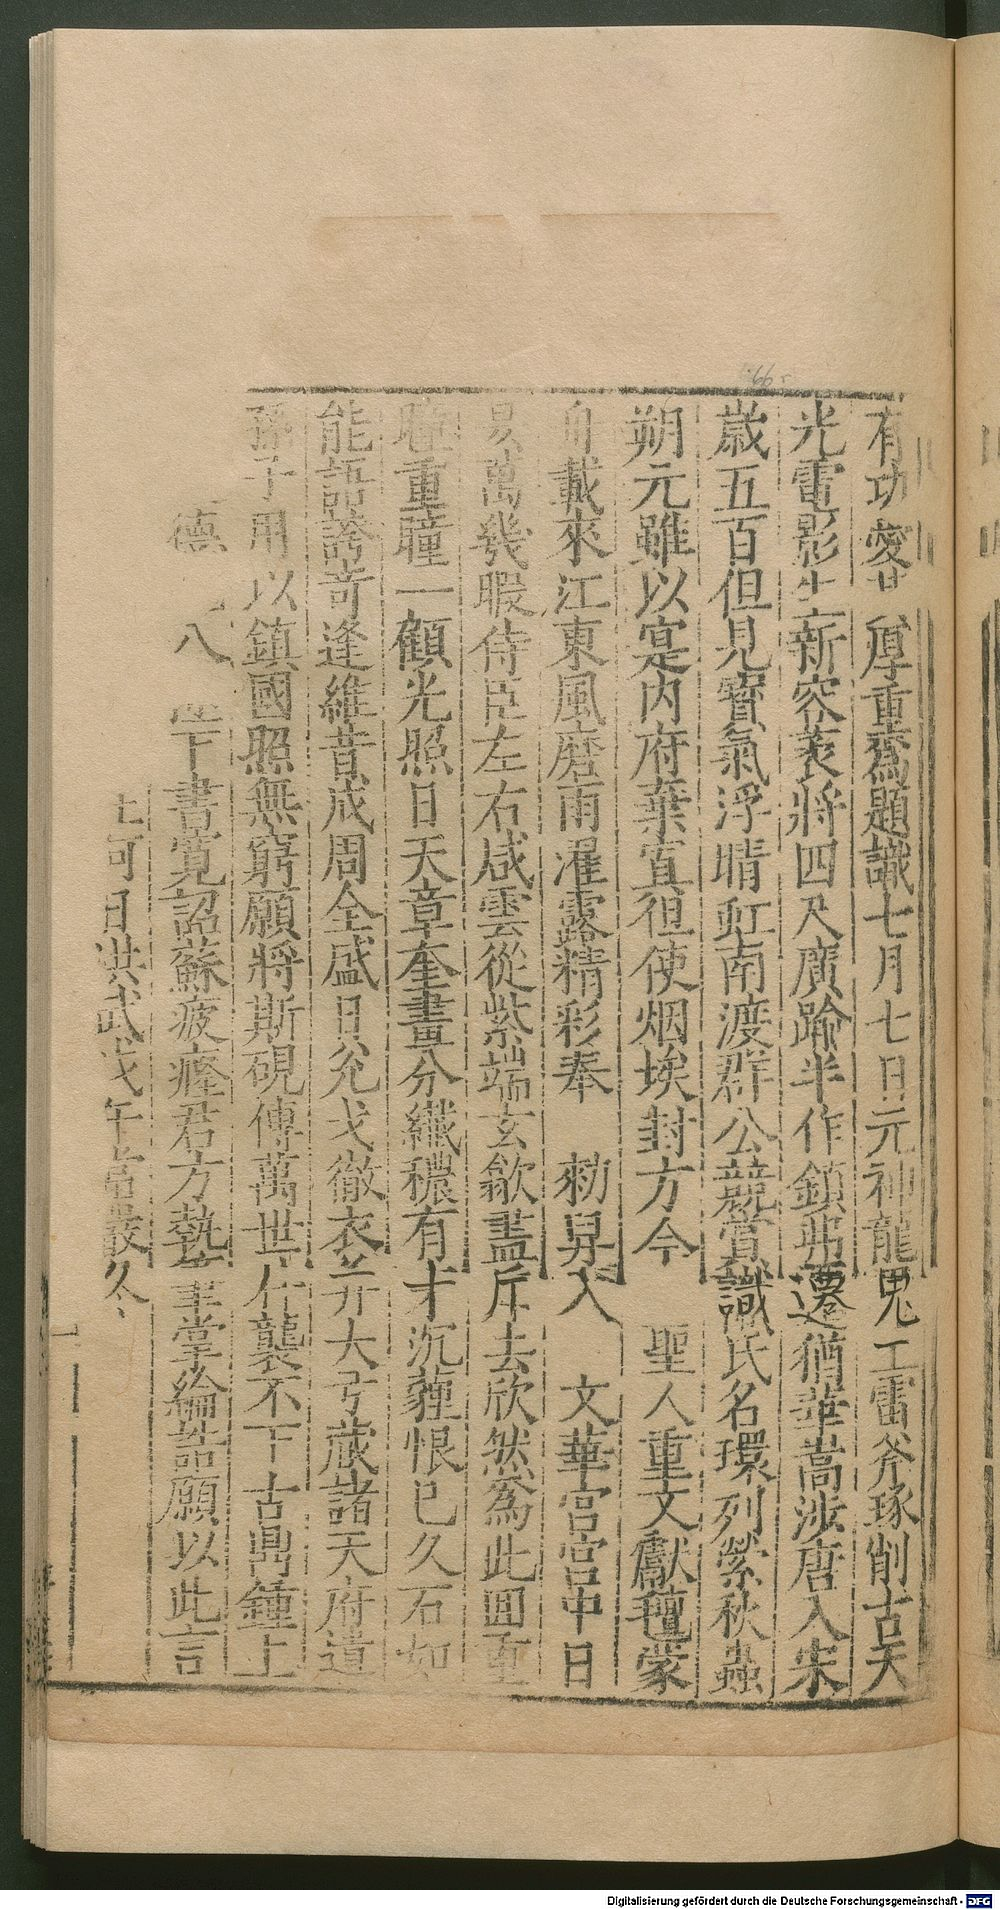 有功愛 厚重爲題識七月七日元神龍鬼工雷斧琢削古天
光電影生新容袤將四尺廣踰半作鎮弗遷猶華嵩涉唐入宋
歲五百但見寶氣浮晴虹南渡群公競賞識氏名環列縈秋蟲
朔元雖以寔内府棄寘徂使烟埃封方今 聖人重文獻氊蒙
舟載來江東風磨雨濯露精彩奉 勑舁入 文華宫宫中日
昃萬幾暇侍臣左右咸雲從紫端玄歙盡斥去欣然爲此囬重
瞳重瞳一顧光照日天章奎畫分纖穠有才沉薶恨已久石如
能語誇奇逢維昔成周全盛日兊戈徹衣并大弓蔵諸天府遺
孫子用以鎮國照無窮願將斯硯傳萬世什襲不下古鼎鍾上
德 八 下書寛詔蘇疲癃君方執筆掌綸誥願以此言
上可日洪武戊午嵗嚴冬
66
Digitalisierung gefördert durch die Deutsche Forschungsgemeinschaft - DFG